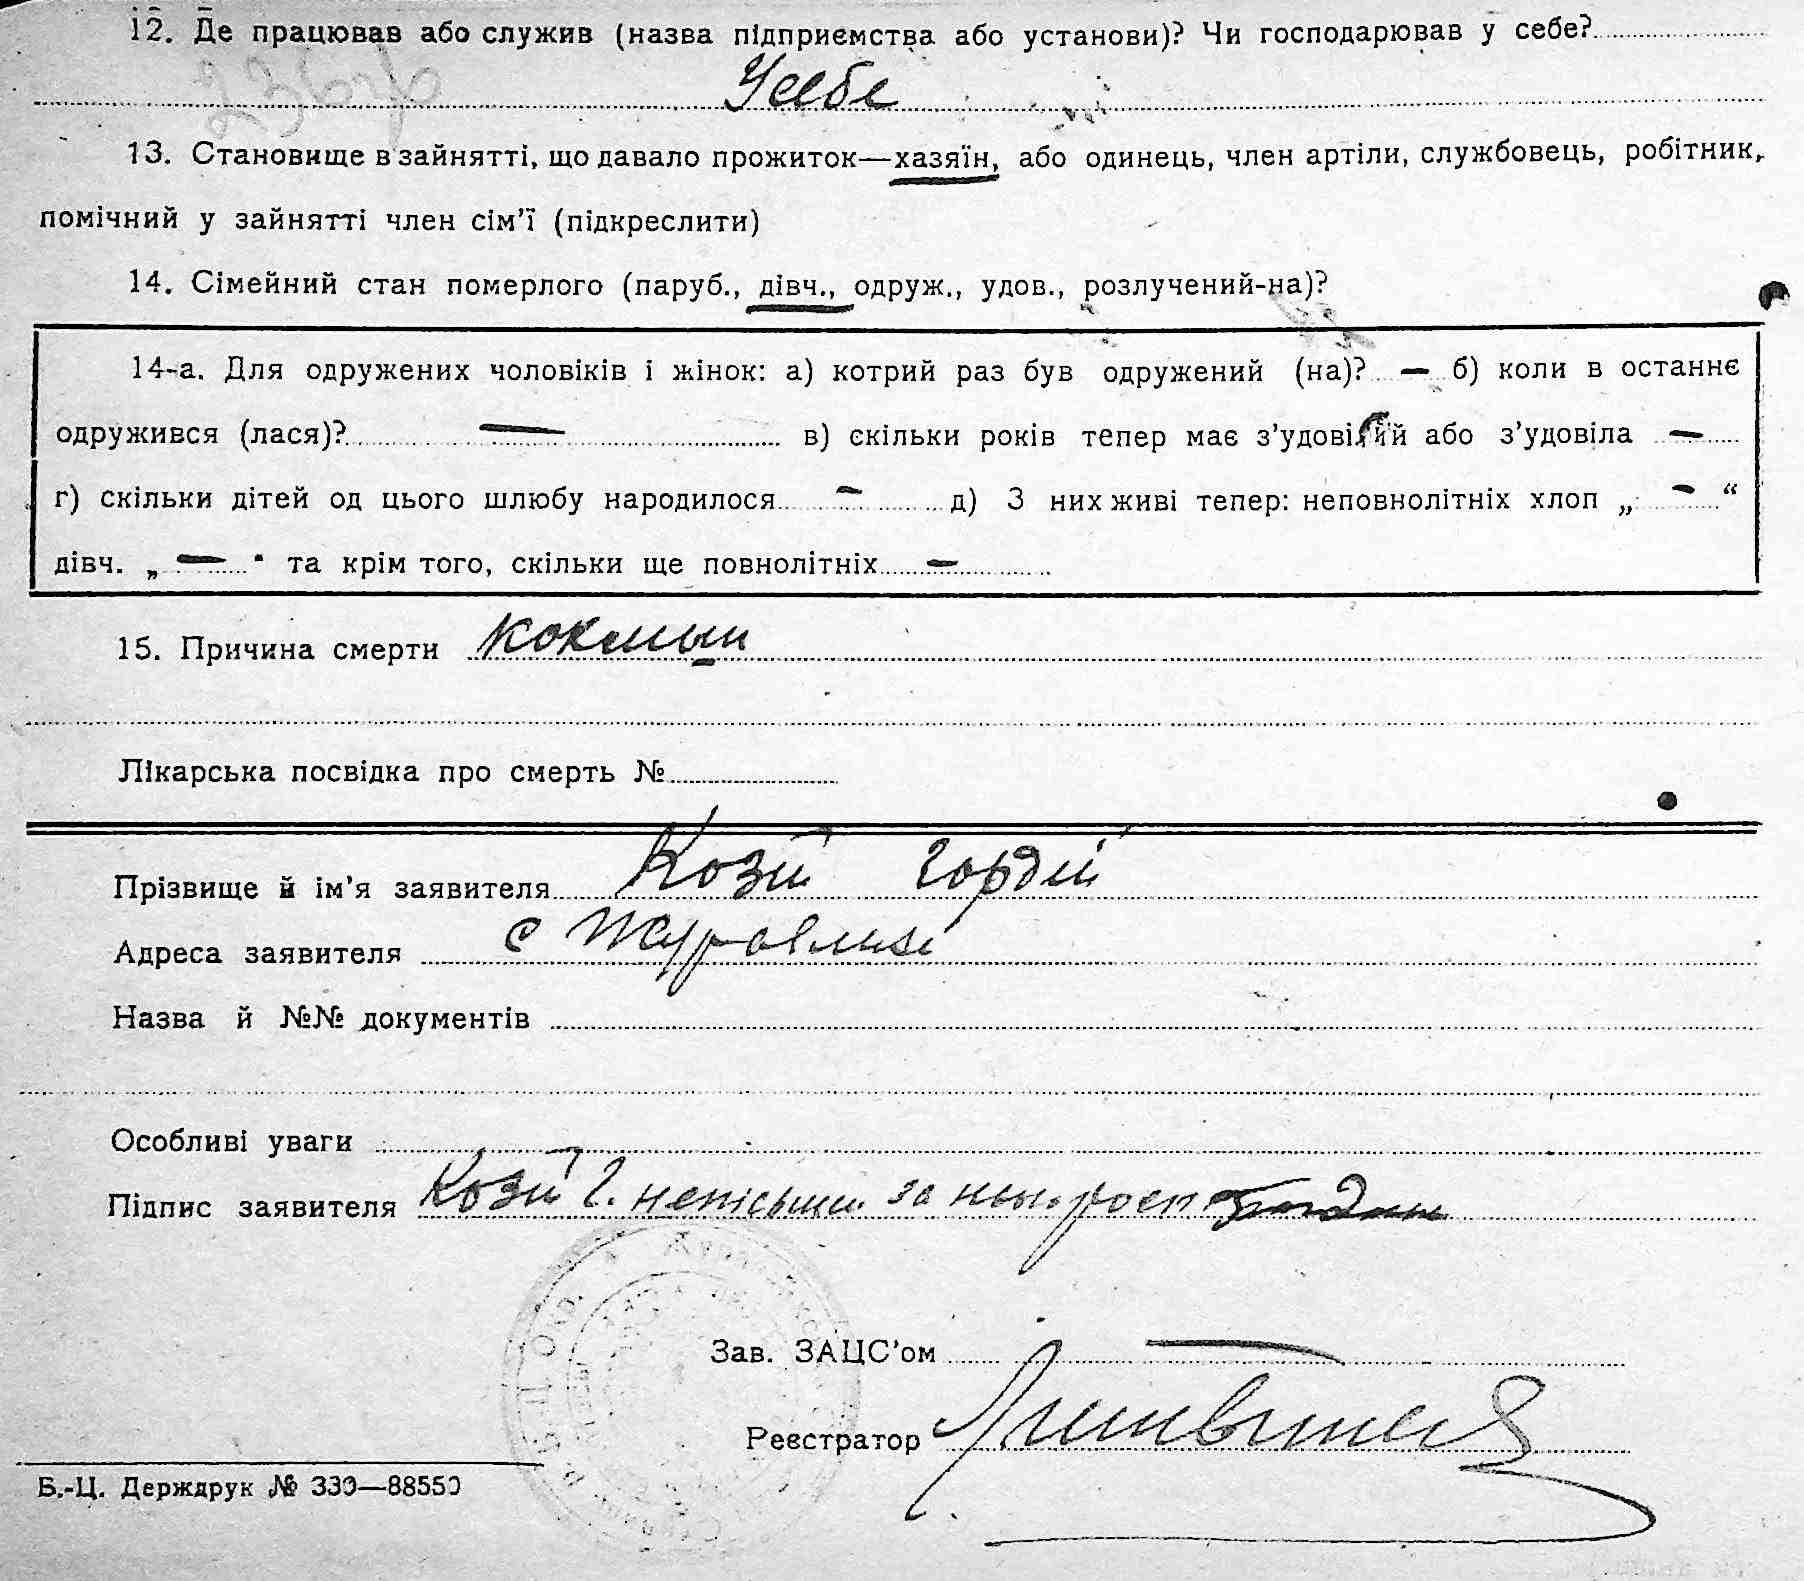 12. Де працював або служив (назва підприємства або установи)? Чи господарював у себе?
У себе
13. Становище в зайнятті, що давало прожиток—хазяїн, або одинець, член артіли, службовець, робітник,
помічний у зайнятті член сім’ї (підкреслити)
14. Сімейний стан померлого (паруб., дівч., одруж., удов., розлучений-на)?
14-а. Для одружених чоловіків і жінок: а) котрий раз був одружений (на)? — б) коли в останнє
одружився (лася)? — в) скільки років тепер має з’удовілий або з’удовіла —
г) скільки дітей од цього шлюбу народилося — д) З них живі тепер: неповнолітніх хлоп „ — “
дівч. „ — “ та крім того, скільки ще повнолітніх —
15. Причина смерти коклюш
Лікарська посвідка про смерть №
Прізвище й ім’я заявителя Козій Гордій
Адреса заявителя с Журавлисі
Назва й №№ документів
Особливі уваги
Підпис заявителя Козій Г. за
Зав. ЗАЦС’ом —
Реєстратор
Б.-Ц. Держдрук № 330—88550